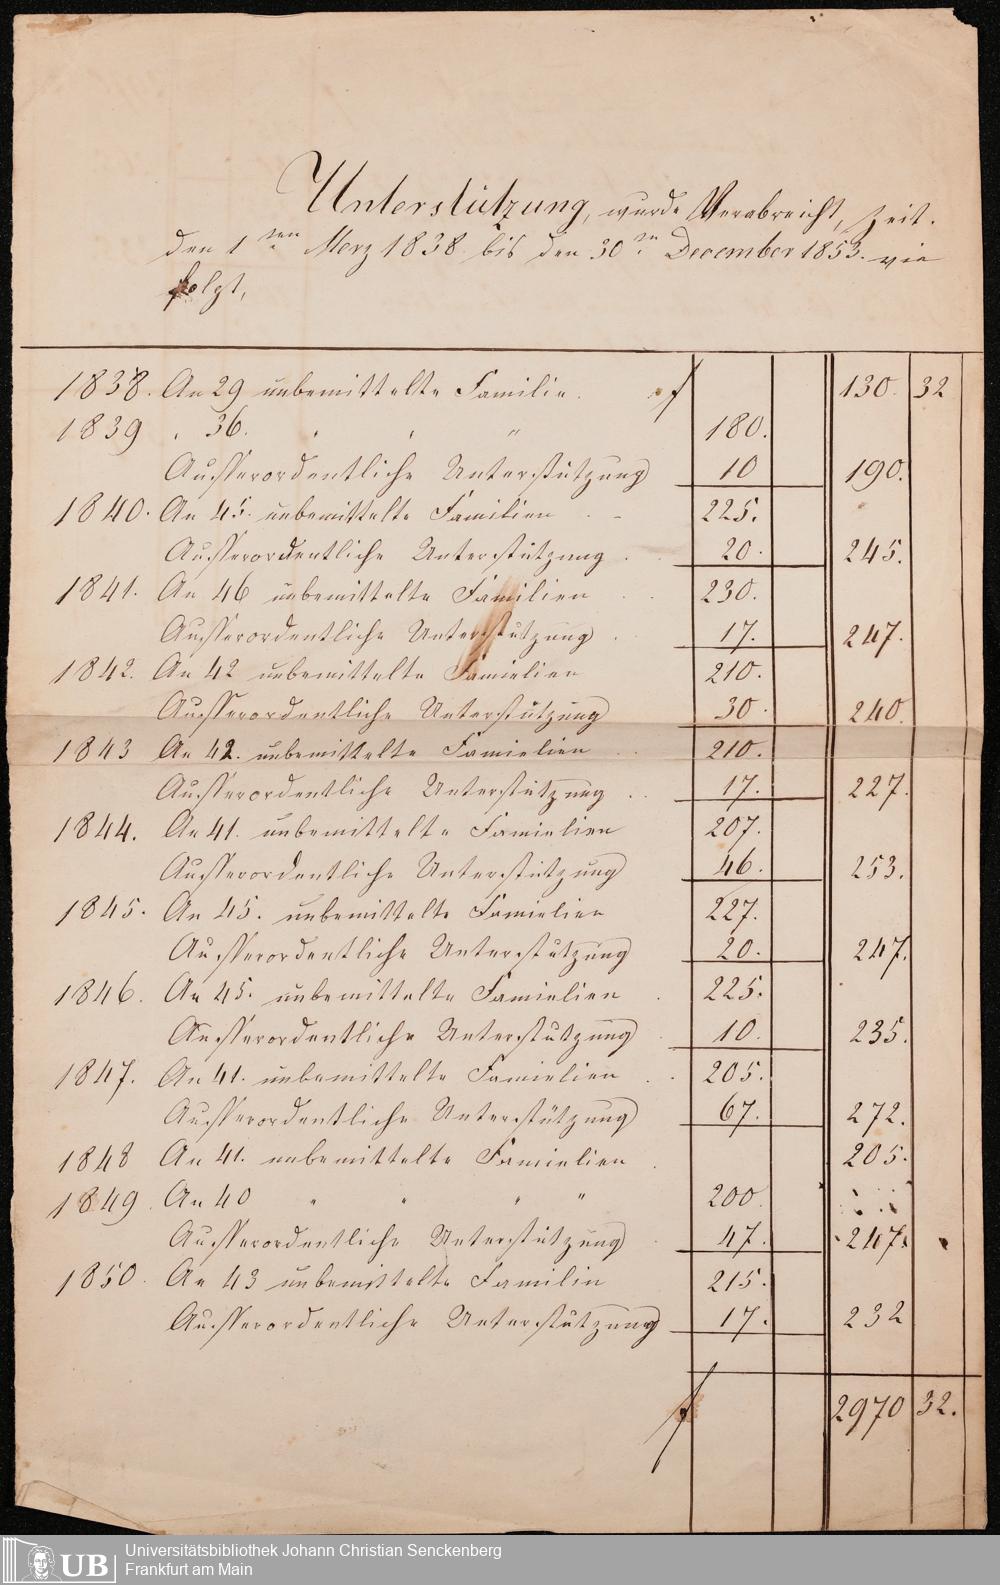 Unterstützung, wurde Verabreicht, Zeit.
den 1ten Merz 1838 bis den 30tn December 1853. wie
folgt,
1838. An 29 unbemittelte Familie. f 130. 32
1839 " 36. " " " 180.
Ausserordentliche Unterstützung 10 190.
1840. An 45. unbemittelte Familien 225.
Ausserordentliche Unterstützung 20. 245.
1841. An 46 unbemittelte Familien 230.
Ausserordentliche Unterstützung 17. 247.
1842. An 42 unbemittelte Famielien 210.
Ausserordentliche Unterstützung 30. 240.
1843 An 42. unbemittelte Famielien 210.
Ausserordentliche Unterstützung 17. 227.
1844. An 41. unbemittelte Famielien 207.
Ausserordentliche Unterstützung 46. 253.
1845. An 45. unbemittelte Famielien 227.
Ausserordentliche Unterstützung 20. 247.
1846. An 45. unbemittelte Famielien 225.
Ausserordentliche Unterstützung 10. 235.
1847. An 41. unbemittelte Famielien 205.
Ausserordentliche Unterstützung 67. 272.
1848 An 41. unbemittelte Famielien 205.
1849. An 40 " " " " 200
Ausserordentliche Unterstützung 47. 247.
1850. An 43 unbemittelte Familin 215.
Ausserordentliche Unterstützung 17. 232
f 2970 32.
UB
Universitätsbibliothek Johann Christian Senckenberg
Frankfurt am Main